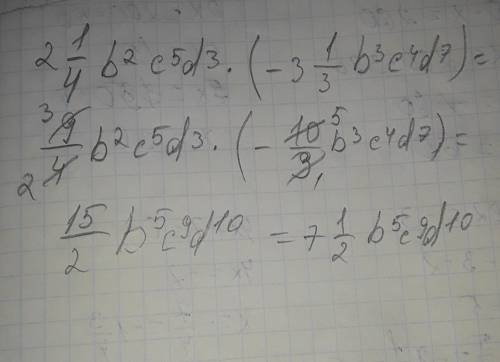 2 1/4 b² c⁵d³ · (-3 1/3 b³c⁴d⁷) =
³9/₂4 b² c⁵d³ · (- 10⁵/3₁ b³c⁴d⁷) =
15/2 b⁵c⁹d¹⁰ = 7 1/2 b⁵c⁹d¹⁰